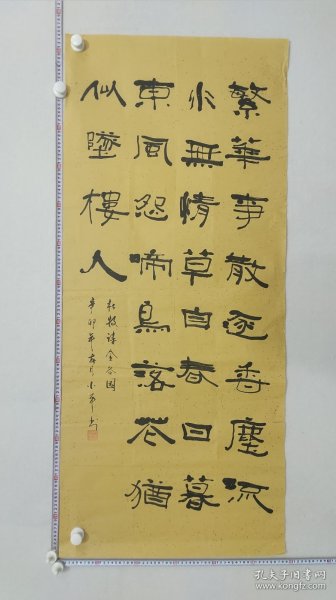 繁華事散逐香塵流
水無情草自春日暮
東風怨啼鳥落花猶
似墜樓人
杜牧詩金谷園
辛卯年
孔夫子旧书网
www.kongfz.com